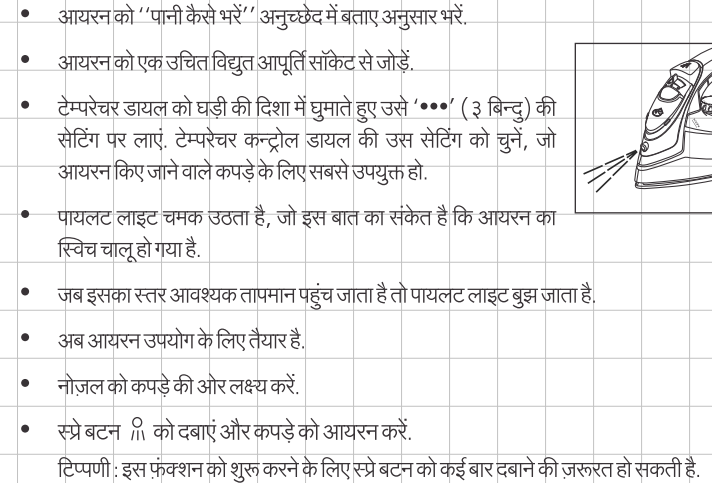 • आयरन को ‘‘पानी कैसे भरें’’ अनुच्छेद में बताए अनुसार भरें.
• आयरन को एक उचित विद्युत आपूर्ति सॉकेट से जोड़ें.
• टेम्परेचर डायल को घड़ी की दिशा में घुमाते हुए उसे ‘•••’ (३ बिन्दु) की
सेटिंग पर लाएं. टेम्परेचर कन्ट्रोल डायल की उस सेटिंग को चुनें, जो
आयरन किए जाने वाले कपड़े के लिए सबसे उपयुक्त हो.
• पायलट लाइट चमक उठता है, जो इस बात का संकेत है कि आयरन का
स्विच चालू हो गया है.
• जब इसका स्तर आवश्यक तापमान पहुंच जाता है तो पायलट लाइट बुझ जाता है.
• अब आयरन उपयोग के लिए तैयार है.
• नोज़ल को कपड़े की ओर लक्ष्य करें.
• स्प्रे बटन को दबाएं और कपड़े को आयरन करें.
टिप्पणी : इस फ़ंक्शन को शुरू करने के लिए स्प्रे बटन को कई बार दबाने की ज़रूरत हो सकती है.